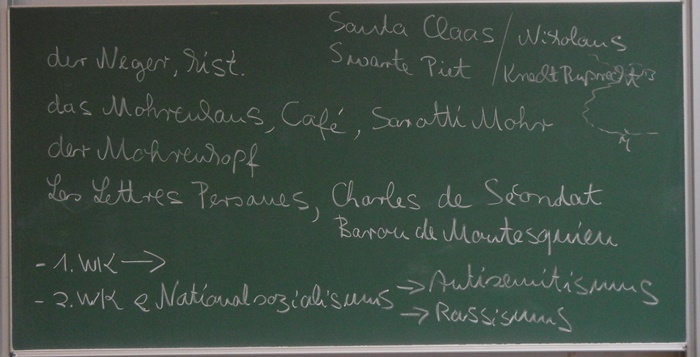 Santa Claas / Nikolaus
der Neger, hist.
Swarte Piet / Knecht Ruprecht
das Mohrenhaus, Café, Sarotti Mohr
der Mohrenkopf
Les Lettres Persanes, Charles de Secondat
Baron de Montesquieu
- 1. WK →
- 2. WK e Nationalsozialismus → Antisemitismus
→ Rassismus